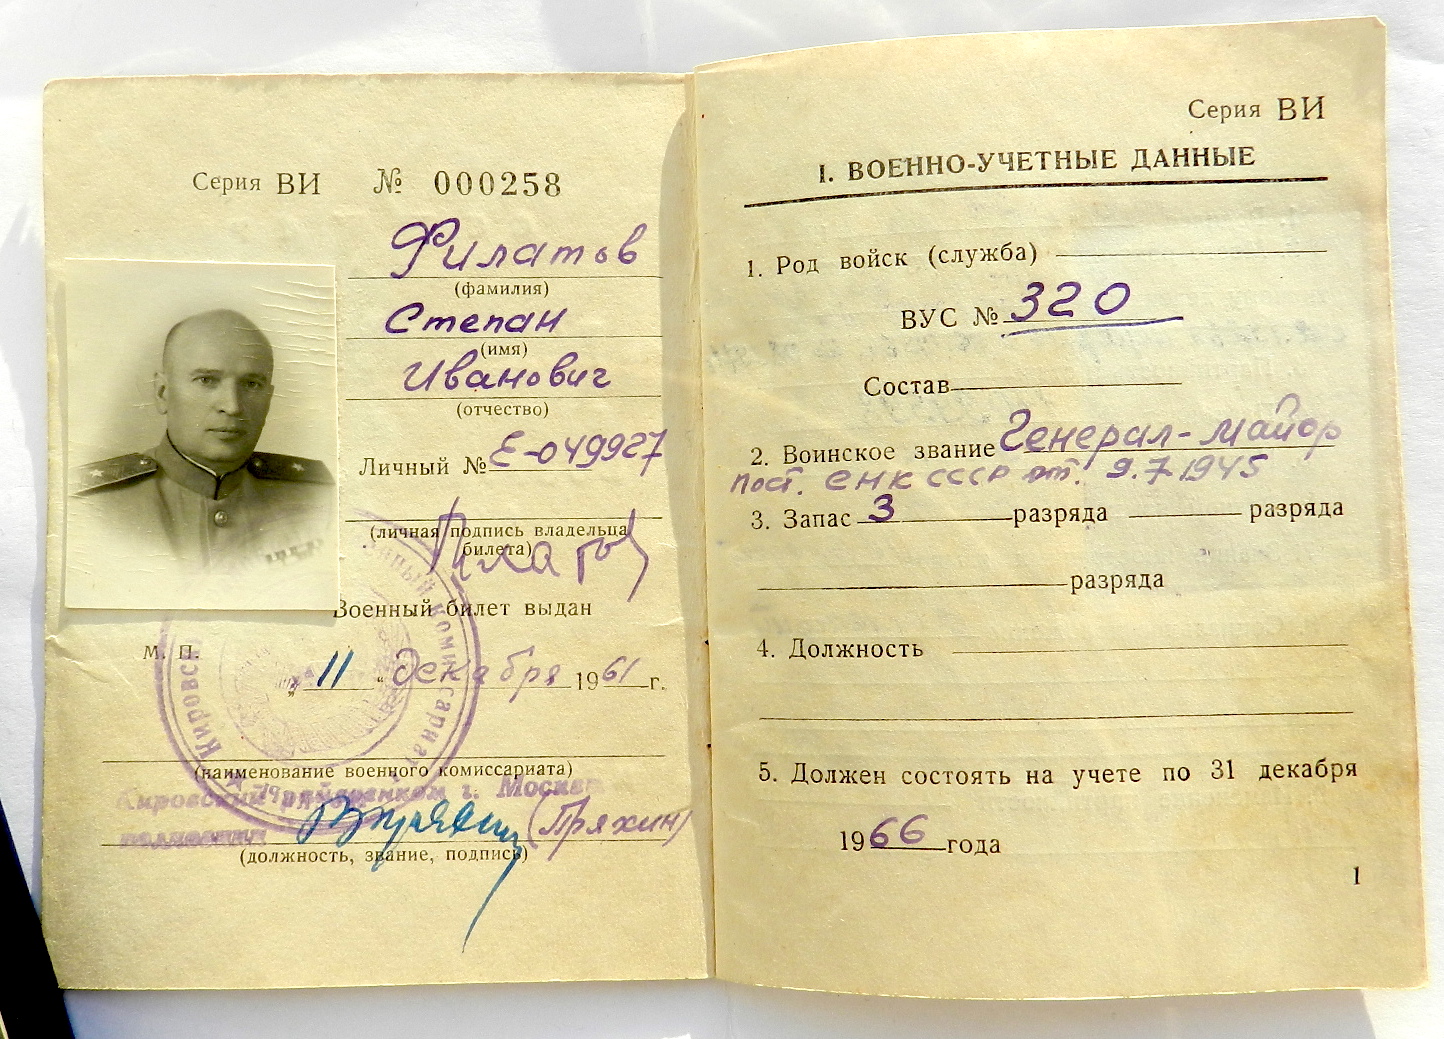 Серия ВИ № 000258
Филатов
(фамилия)
Степан
(имя)
Иванович
(отчество)
Личный № Е-049927
(личная подпись владельца
билета)
Военный билет выдан
М. П.
„ 11 “ декабря 1961 г.
(наименование военного комиссариата)
Кировский райвоенком г. Москвы
(Пряхин)
(должность, звание, подпись)
Серия ВИ
I. ВОЕННО-УЧЕТНЫЕ ДАННЫЕ
1. Род войск (служба)
ВУС № 320
Состав
2. Воинское звание Генерал-майор
пост. СНК СССР от. 9.7.1945
3. Запас 3 разряда разряда
разряда
4. Должность
5. Должен состоять на учете по 31 декабря
1966 года
1